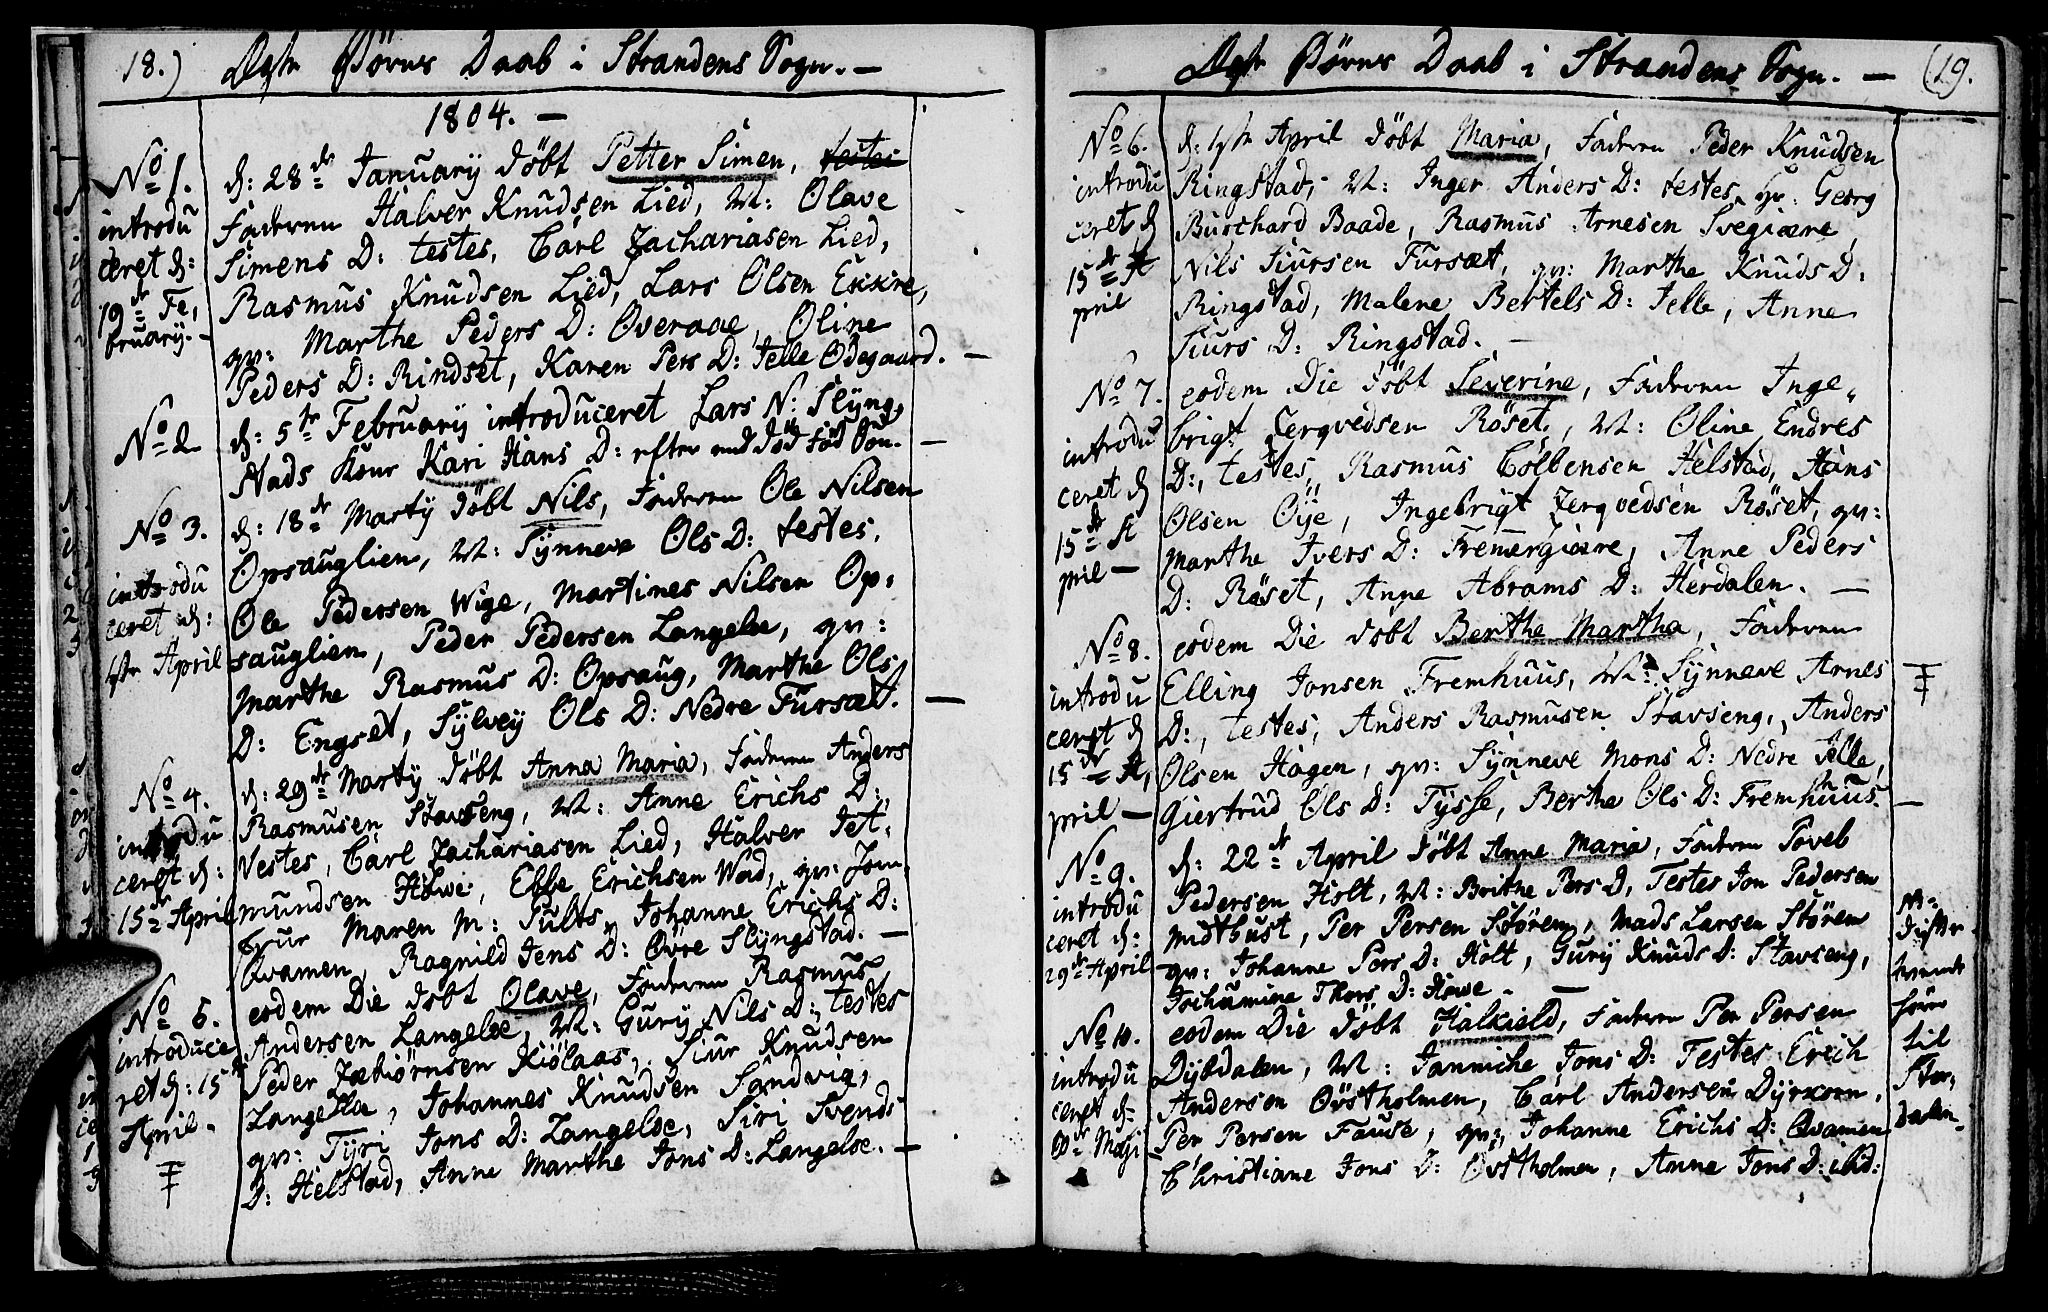 18.) Ægte Børns Daab i Strandens Sogn. —
1804. —
No 1.
introdu
ceret d:
19de Fe,
bruary. -
d: 28de January döbt Petter Simen, testes
Faderen Halver Knudsen Lied, M: Olave
Simens D: testes, Carl Zachariasen Lied,
Rasmus Knudsen Lied, Lars Olsen Ekkre,
qv: Marthe Peders D: Overaae, Oline
Peders D: Rindset, Karen Pers D: Jelle Ödegaard. —
No 2
d: 5te February introduceret Lars N: Slyng,
stads Kone Kari Hans D: efter end död föd Sön. —
No 3.
introdu
ceret d:
1ste April
d: 18de Marty döbt Nils, Faderen Ole Nilsen
Opsauglien, M: Synneve Ols D: testes,
Ole Pedersen Wige, Martines Nilsen Op,
sauglien, Peder Pedersen Langelse, qv:
Marthe Rasmus D: Opsaug, Marthe Ols
D: Engset, Sylvey Ols D: Nedre Fursæt. —
No 4.
introdu
ceret d:
15de April
d: 29de Marty döbt Anna Maria, Faderen Anders
Rasmusen Stavseng, M: Anne Erichs D:,
Testes, Carl Zachariasen Lied, Halver Jet,
mundsen Höwe, Ebbe Erichsen Wad, qv: Jom
frue Maren M: Sults, Johanne Erichs D:
Qvamen, Ragnild Jens D: Övre Slyngstad. —
No 5.
introduce
ret d: 15de
April -
eodem Die döbt Olave, Faderen Rasmus
Andersen Langelse, M: Gury Nils D:, testes
Peder Jebiörnsen Kiölaas, Siur Knudsen
Langelse, Johannes Knudsen Sandvig,
qv: Tyri Jons D: Langelse, Siri Svends
D: Helstad, Anne Marthe Jons D: Langelse. —
Ægte Börns Daab i Strandens Sogn. — (19.
No 6.
introdu
ceret d
15de A
pril
d: 1ste April döbt Maria, Faderen Peder Knudsen
Ringstad, M: Inger Anders D: testes, Hr: Georg
Burchard Baade, Rasmus Arnesen Svegiære,
Nils Siursen Fursæt, qv: Marthe Knuds D:
Ringstad, Malene Bertels D: Jelle, Anne
Siurs D: Ringstad. —
No 7.
introdu
ceret d
15de A
pril —
eodem Die döbt Severine, Faderen Inge,
brigt Jerqvedsen Röset, M: Oline Endres
D:, testes, Rasmus Colbensen Helstad, Hans
Olsen Öye, Ingebrigt Jerqvedsen Röset, qv:
Marthe Ivers D: Fremergiære, Anne Peders
D: Röset, Anne Abrams D: Herdalen. —
No 8.
introdu
ceret d
15de A,
pril —
eodem Die döbt Berthe Martha, Faderen
Elling Jonsen Fremhuus, M: Synneve Arnes
D:, testes, Anders Rasmusen Stavseng, Anders
Olsen Hagen, qv: Synneve Mons D: Nedre Jelle,
Giertrud Ols D: Tysse, Berthe Ols D: Fremhuus. —
No 9.
introdu
ceret d:
29de April
d: 22de April döbt Anne Maria, Faderen Poveb
Pedersen Holt, M: Brithe Pers D, Testes Jon Pedersen
Midthust, Per Persen Stören, Mads Larsen Stören
qv: Johanne Pers D: Holt, Gury Knuds D: Stavseng,
Jochumine Thors D: Höwe. —
No 10.
introdu
ceret d:
Maji
eodem Die döbt Halkield, Faderen Per Persen
Dybdalen, M: Janniche Jons D: Testes Erich
Andersen Övstholmen, Carl Andersen Dyrkorn,
Per Persen Fause, qv:, Johanne Erichs D: Qvamen
Christiane Jons D: Övstholmen, Anne Jons D: ibid:
höre
til
Stor,
dalen.